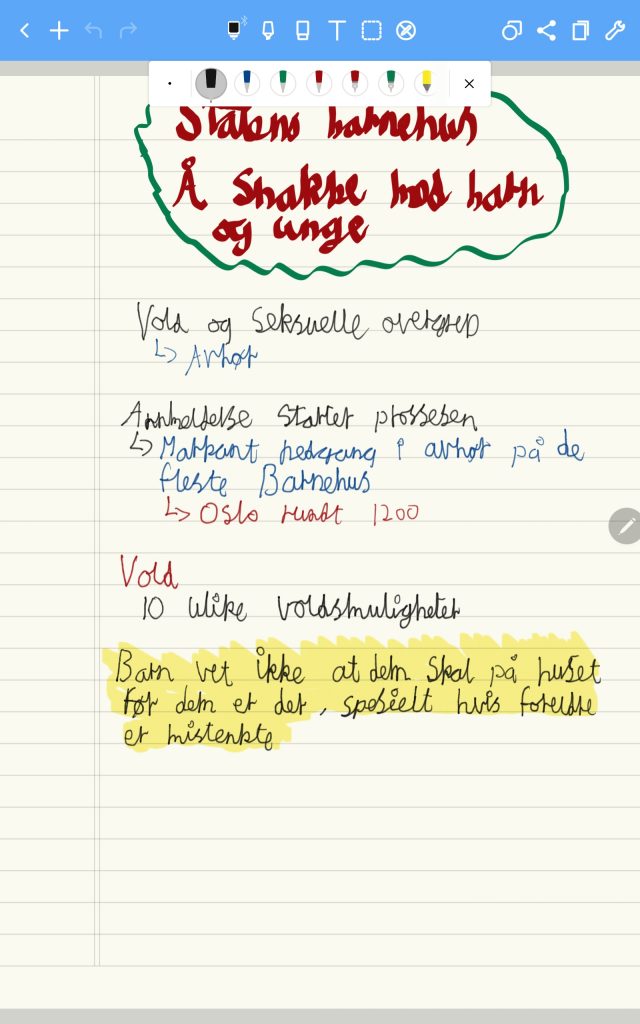 Statens barnehus
Å snakke med barn
og unge
Vold og seksuelle overgrep
↳ Avhør
Annmeldelse startet prossesen
↳ Markant nedgang i avhør på de
fleste Barnehus
↳ Oslo rundt 1200
Vold
10 ulike voldsmuligheter
Barn vet ikke at dem skal på huset
før dem er der, spesielt hvis foreldre
er mistenkte